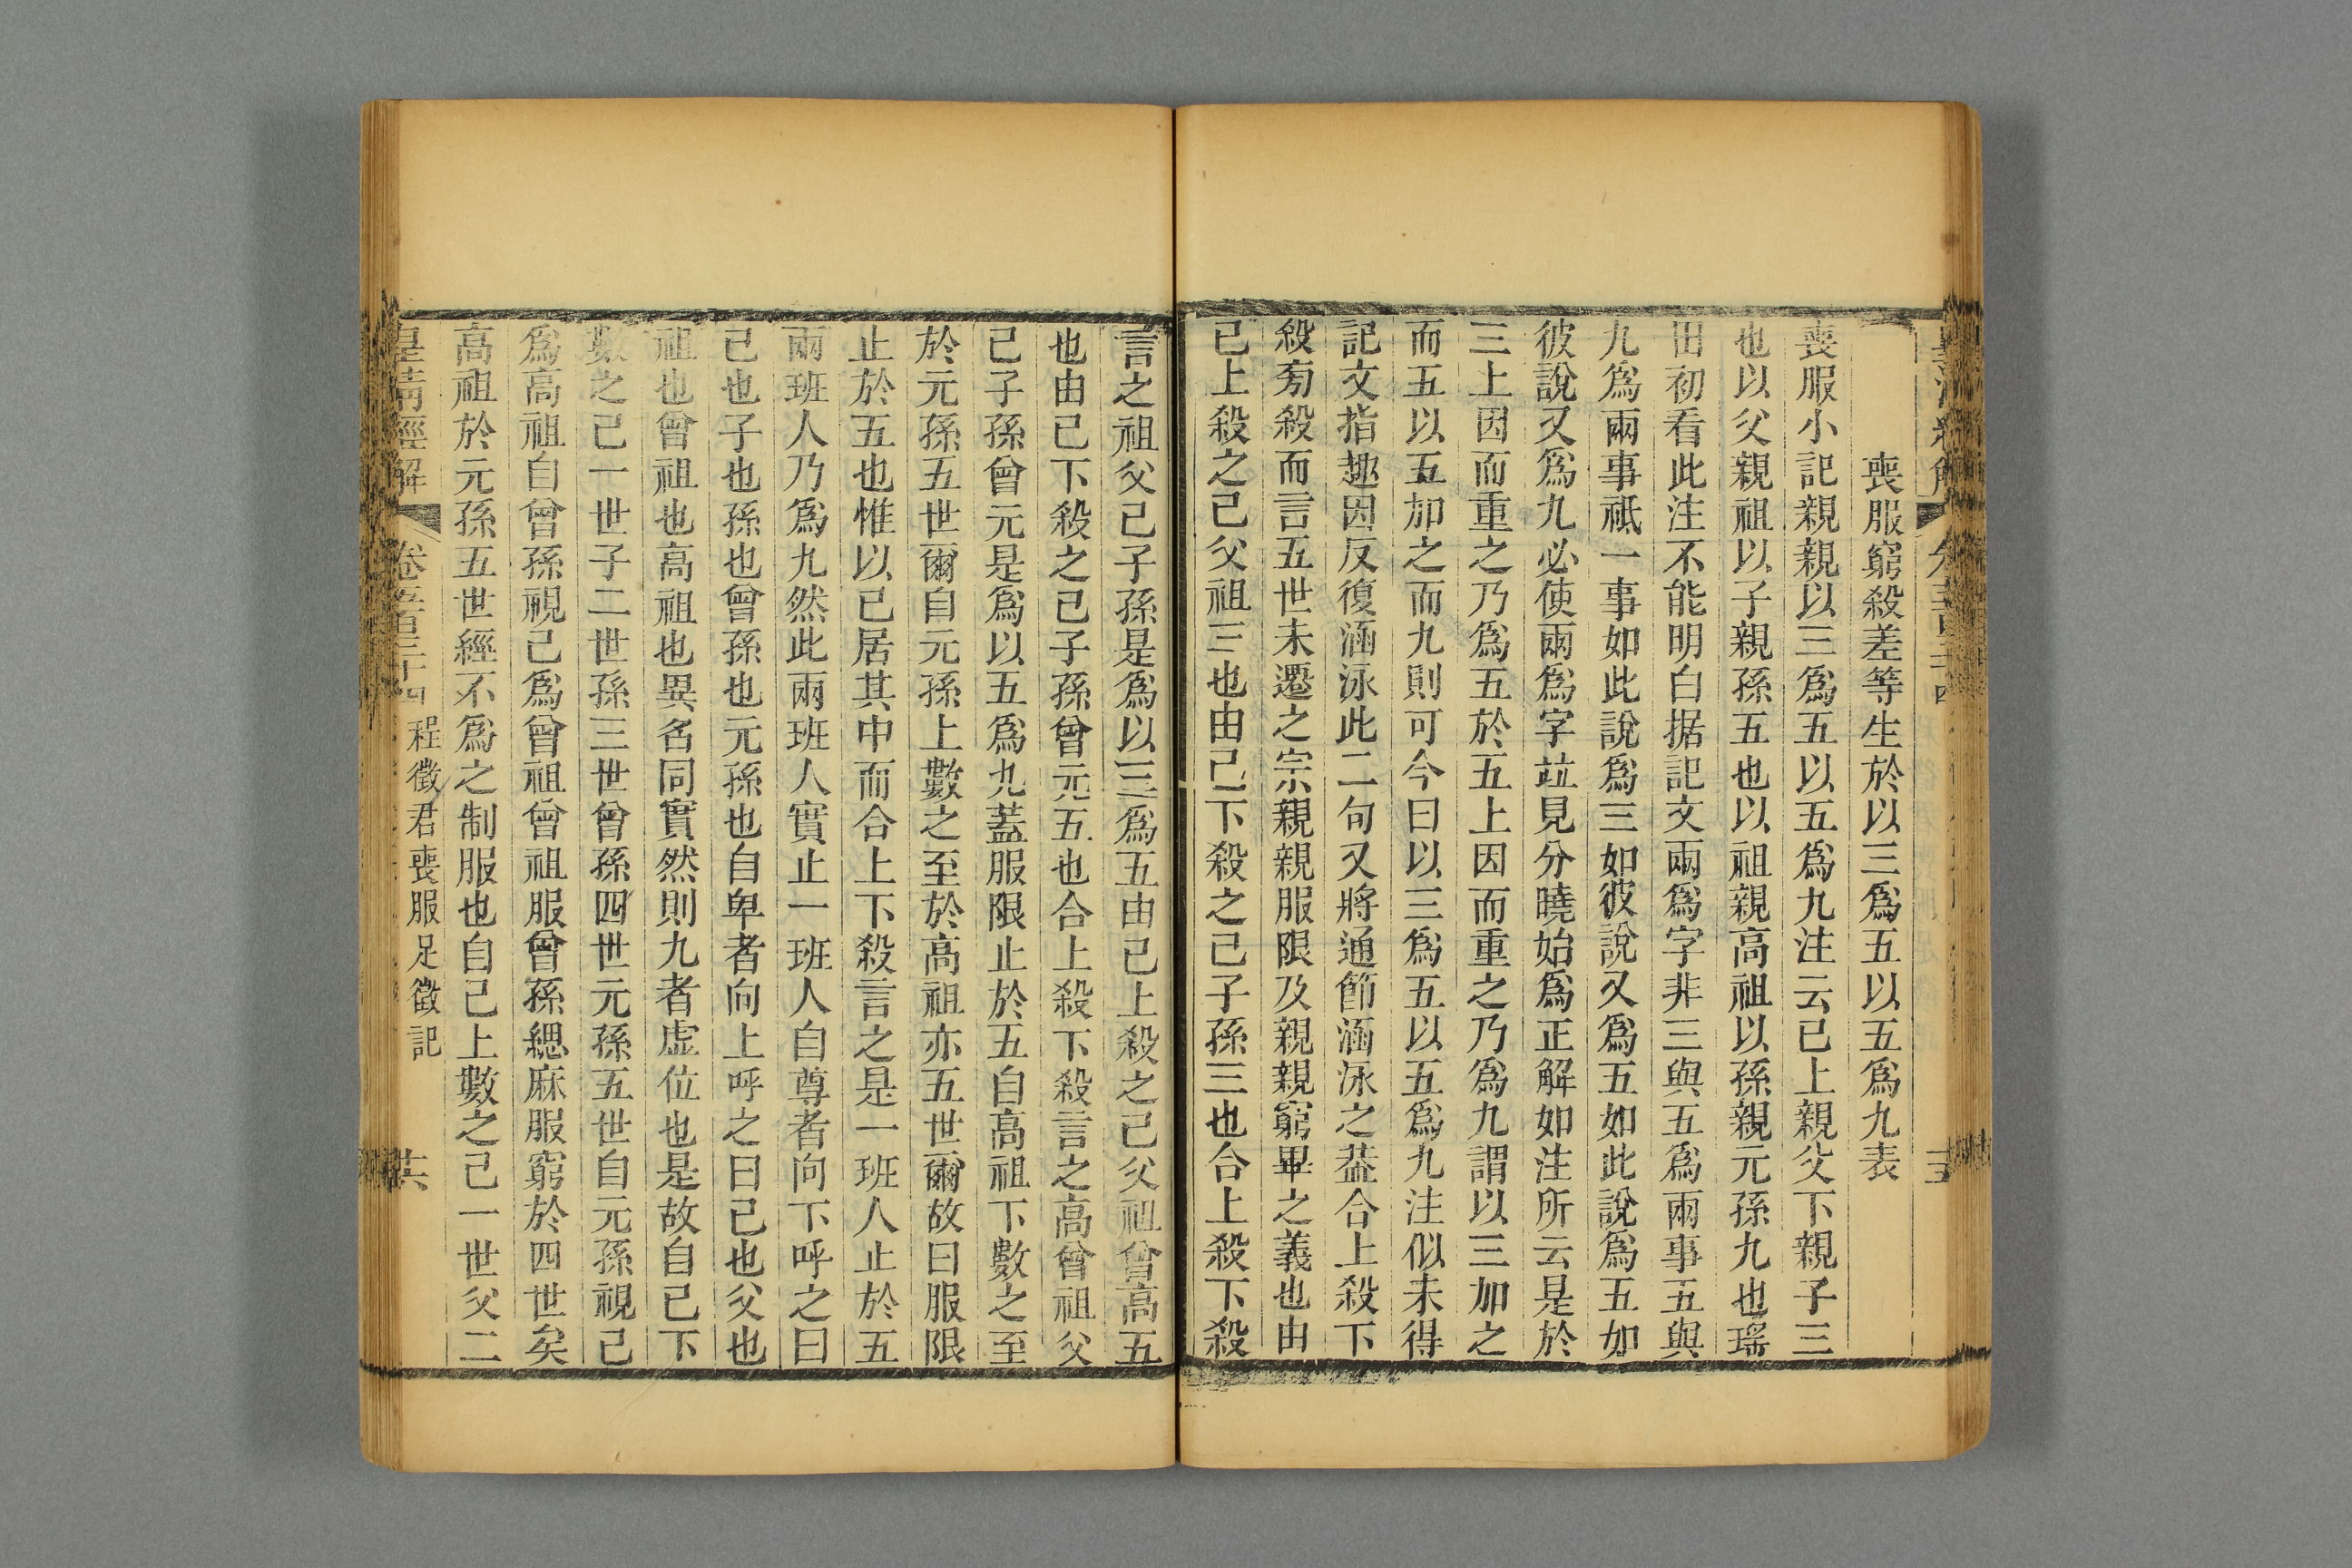 喪服窮殺差等生於以三爲五以五爲九表
喪服小記親親以三爲五以五爲九注云已上親父下親子三
也以父親祖以子親孫五也以祖親高祖以孫親元孫九也瑤
田初看此注不能明白据記文兩爲字非三與五爲兩事五與
九爲兩事祗一事如此說爲三如彼說又爲五如此說爲五如
彼說又爲九必使兩爲字竝見分曉始爲正解如注所云是於
三上因而重之乃爲五於五上因而重之乃爲九謂以三加之
而五以五加之而九則可今日以三爲五以五爲九注似未得
記文指趣因反復涵泳此二句又將通節涵泳之葢合上殺下
殺旁殺而言五世未遷之宗親親服限及親親窮畢之義也由
已上殺之己父祖三也由己下殺之己子孫三也合上殺下殺
言之祖父己子孫是爲以三爲五由已上殺之己父祖曾高五
也由己下殺之己子孫曾元五也合上殺下殺言之高曾祖父
己子孫曾元是爲以五爲九蓋服限止於五自高祖下數之至
於元孫五世爾自元孫上數之至於高祖亦五世爾故曰服限
止於五也惟以已居其中而合上下殺言之是一班人止於五
兩班人乃爲九然此兩班人實止一班人自尊者向下呼之曰
己也子也孫也曾孫也元孫也自卑者向上呼之曰己也父也
祖也曾祖也高祖也異名同實然則九者虛位也是故自己下
數之己一世子二世孫三世曾孫四世元孫五世自元孫視己
爲高祖自曾孫視己爲曾祖曾祖服曾孫緦麻服窮於四世矣
高祖於元孫五世經不爲之制服也自己上數之己一世父二
皇清經解 卷五百二十四 程徵君喪服足徵記 共